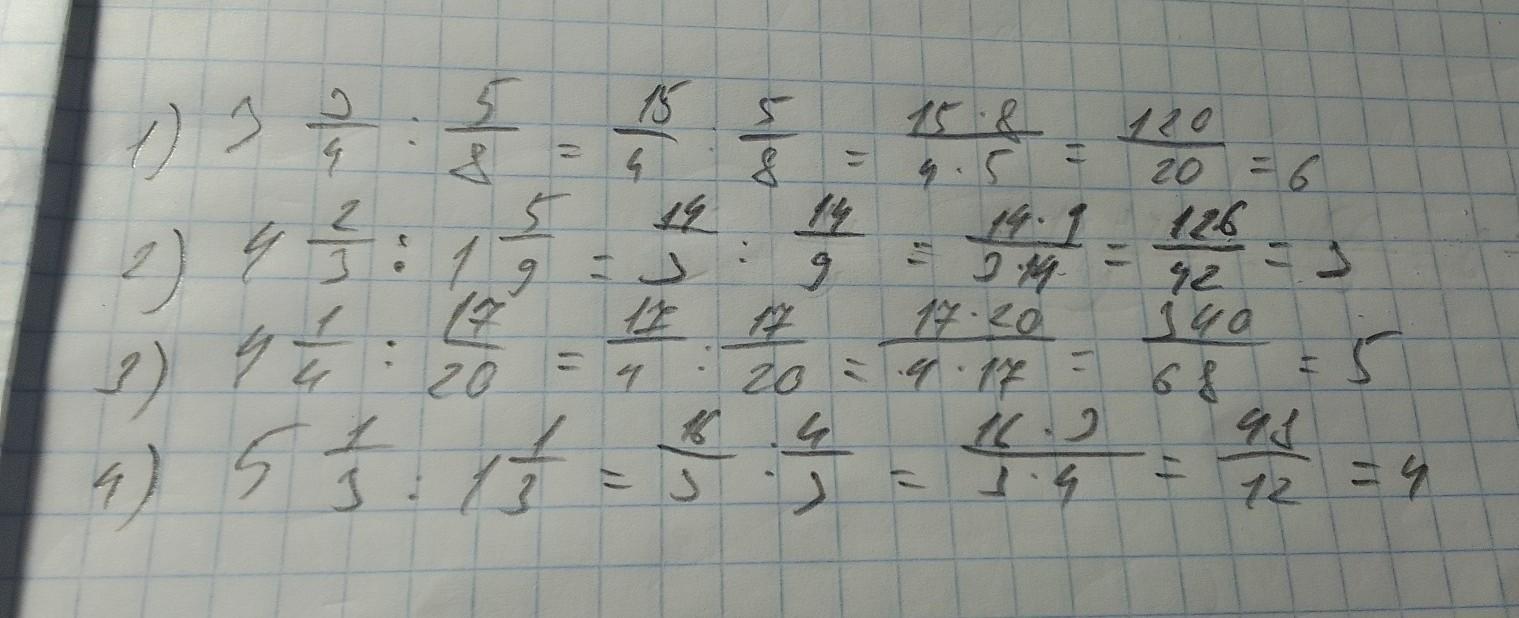 1) 3 3/4 : 5/8 = 15/4 : 5/8 = 15·8/4·5 = 120/20 = 6
2) 4 2/3 : 1 5/9 = 14/3 : 14/9 = 14·9/3·14 = 126/42 = 3
3) 4 1/4 : 17/20 = 17/4 : 17/20 = 17·20/4·17 = 340/68 = 5
4) 5 1/3 : 1 1/3 = 16/3 : 4/3 = 16·3/3·4 = 48/12 = 4